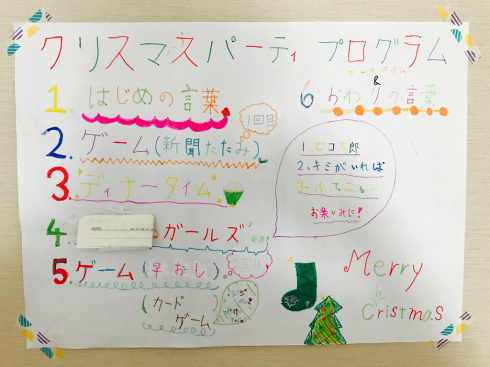 クリスマスパーティ プログラム
1. はじめの言葉
2. ゲーム(新聞たたみ)
1回目
3. ディナータイム
4 ガールズ
5. ゲーム(早おし)
(カードゲーム)
ケーキタイム
&
6 おわりの言葉
1. ピコ太郎
2. キミがいれば
お楽しみに!
Merry
Cristmas